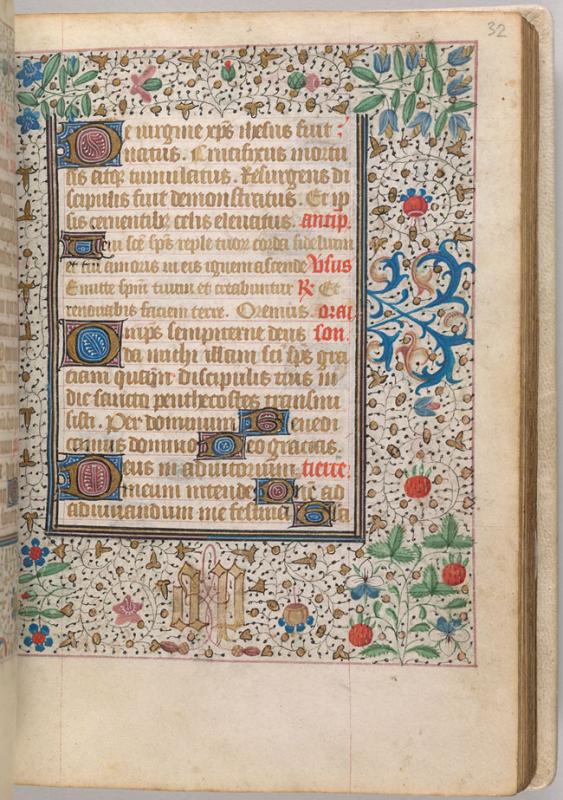 32
De uirgine xp̄s ihesus fuit
natus. Crucifixus mortu
us atqꝫ tumulatus. Resurgens di
scipulis fuit demonstratus. Et ip
sis cernentibꝫ celis eleuatus. antip̄.
Veni scē sp̄s reple tuoꝝ corda fidelium
et tui amoris in eis ignem ascende Vsus
Emitte sp̄m tuum et creabuntur ℟ Et
renouabis faciem terre. Oremus. orai
Omp̄s sempiterne deus
da michi illam sci sp̄s gra
ciam quam discipulis tuis in
die sancto penthecostes transmi
sisti. Per dominum Benedi
camus domino Deo gracias.
Deus in adiutorium tierce.
meum intende Dn̄e ad
adiuuandum me festina Gła